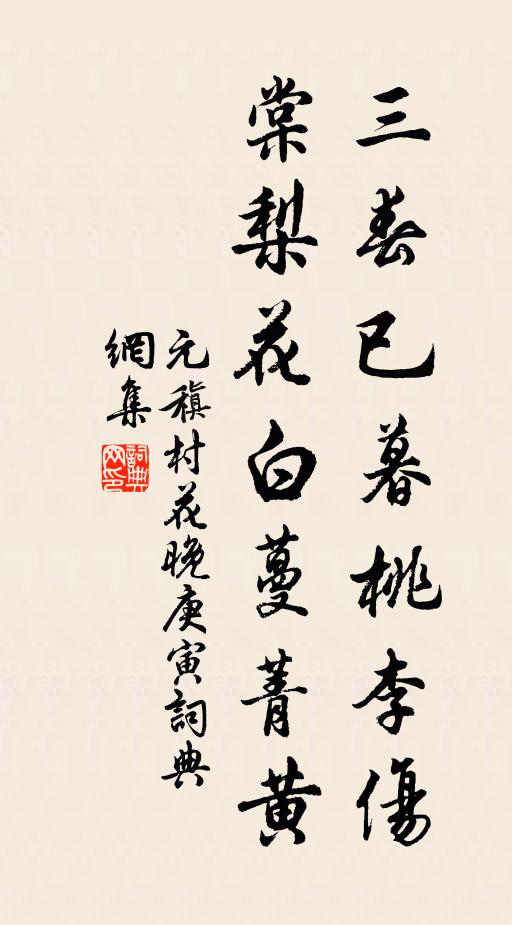 三春已暮桃李傷
棠梨花白蔓菁黃
元稹村花晚庚寅詞典
網集
詞典
网印